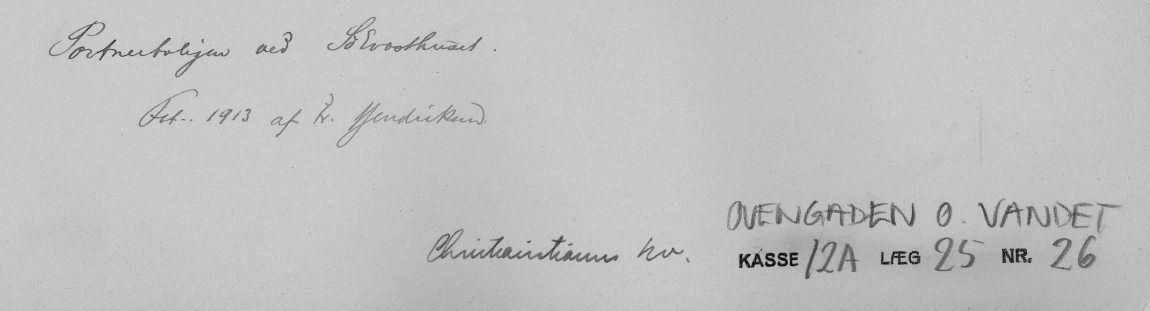 Portnerboligen ved SøKvæsthuset.
Fot.. 1913 af Fr. Hendriksen
OVENGADEN O. VANDET
Christianshavns kv.
KASSE 12A LÆG 25 NR. 26